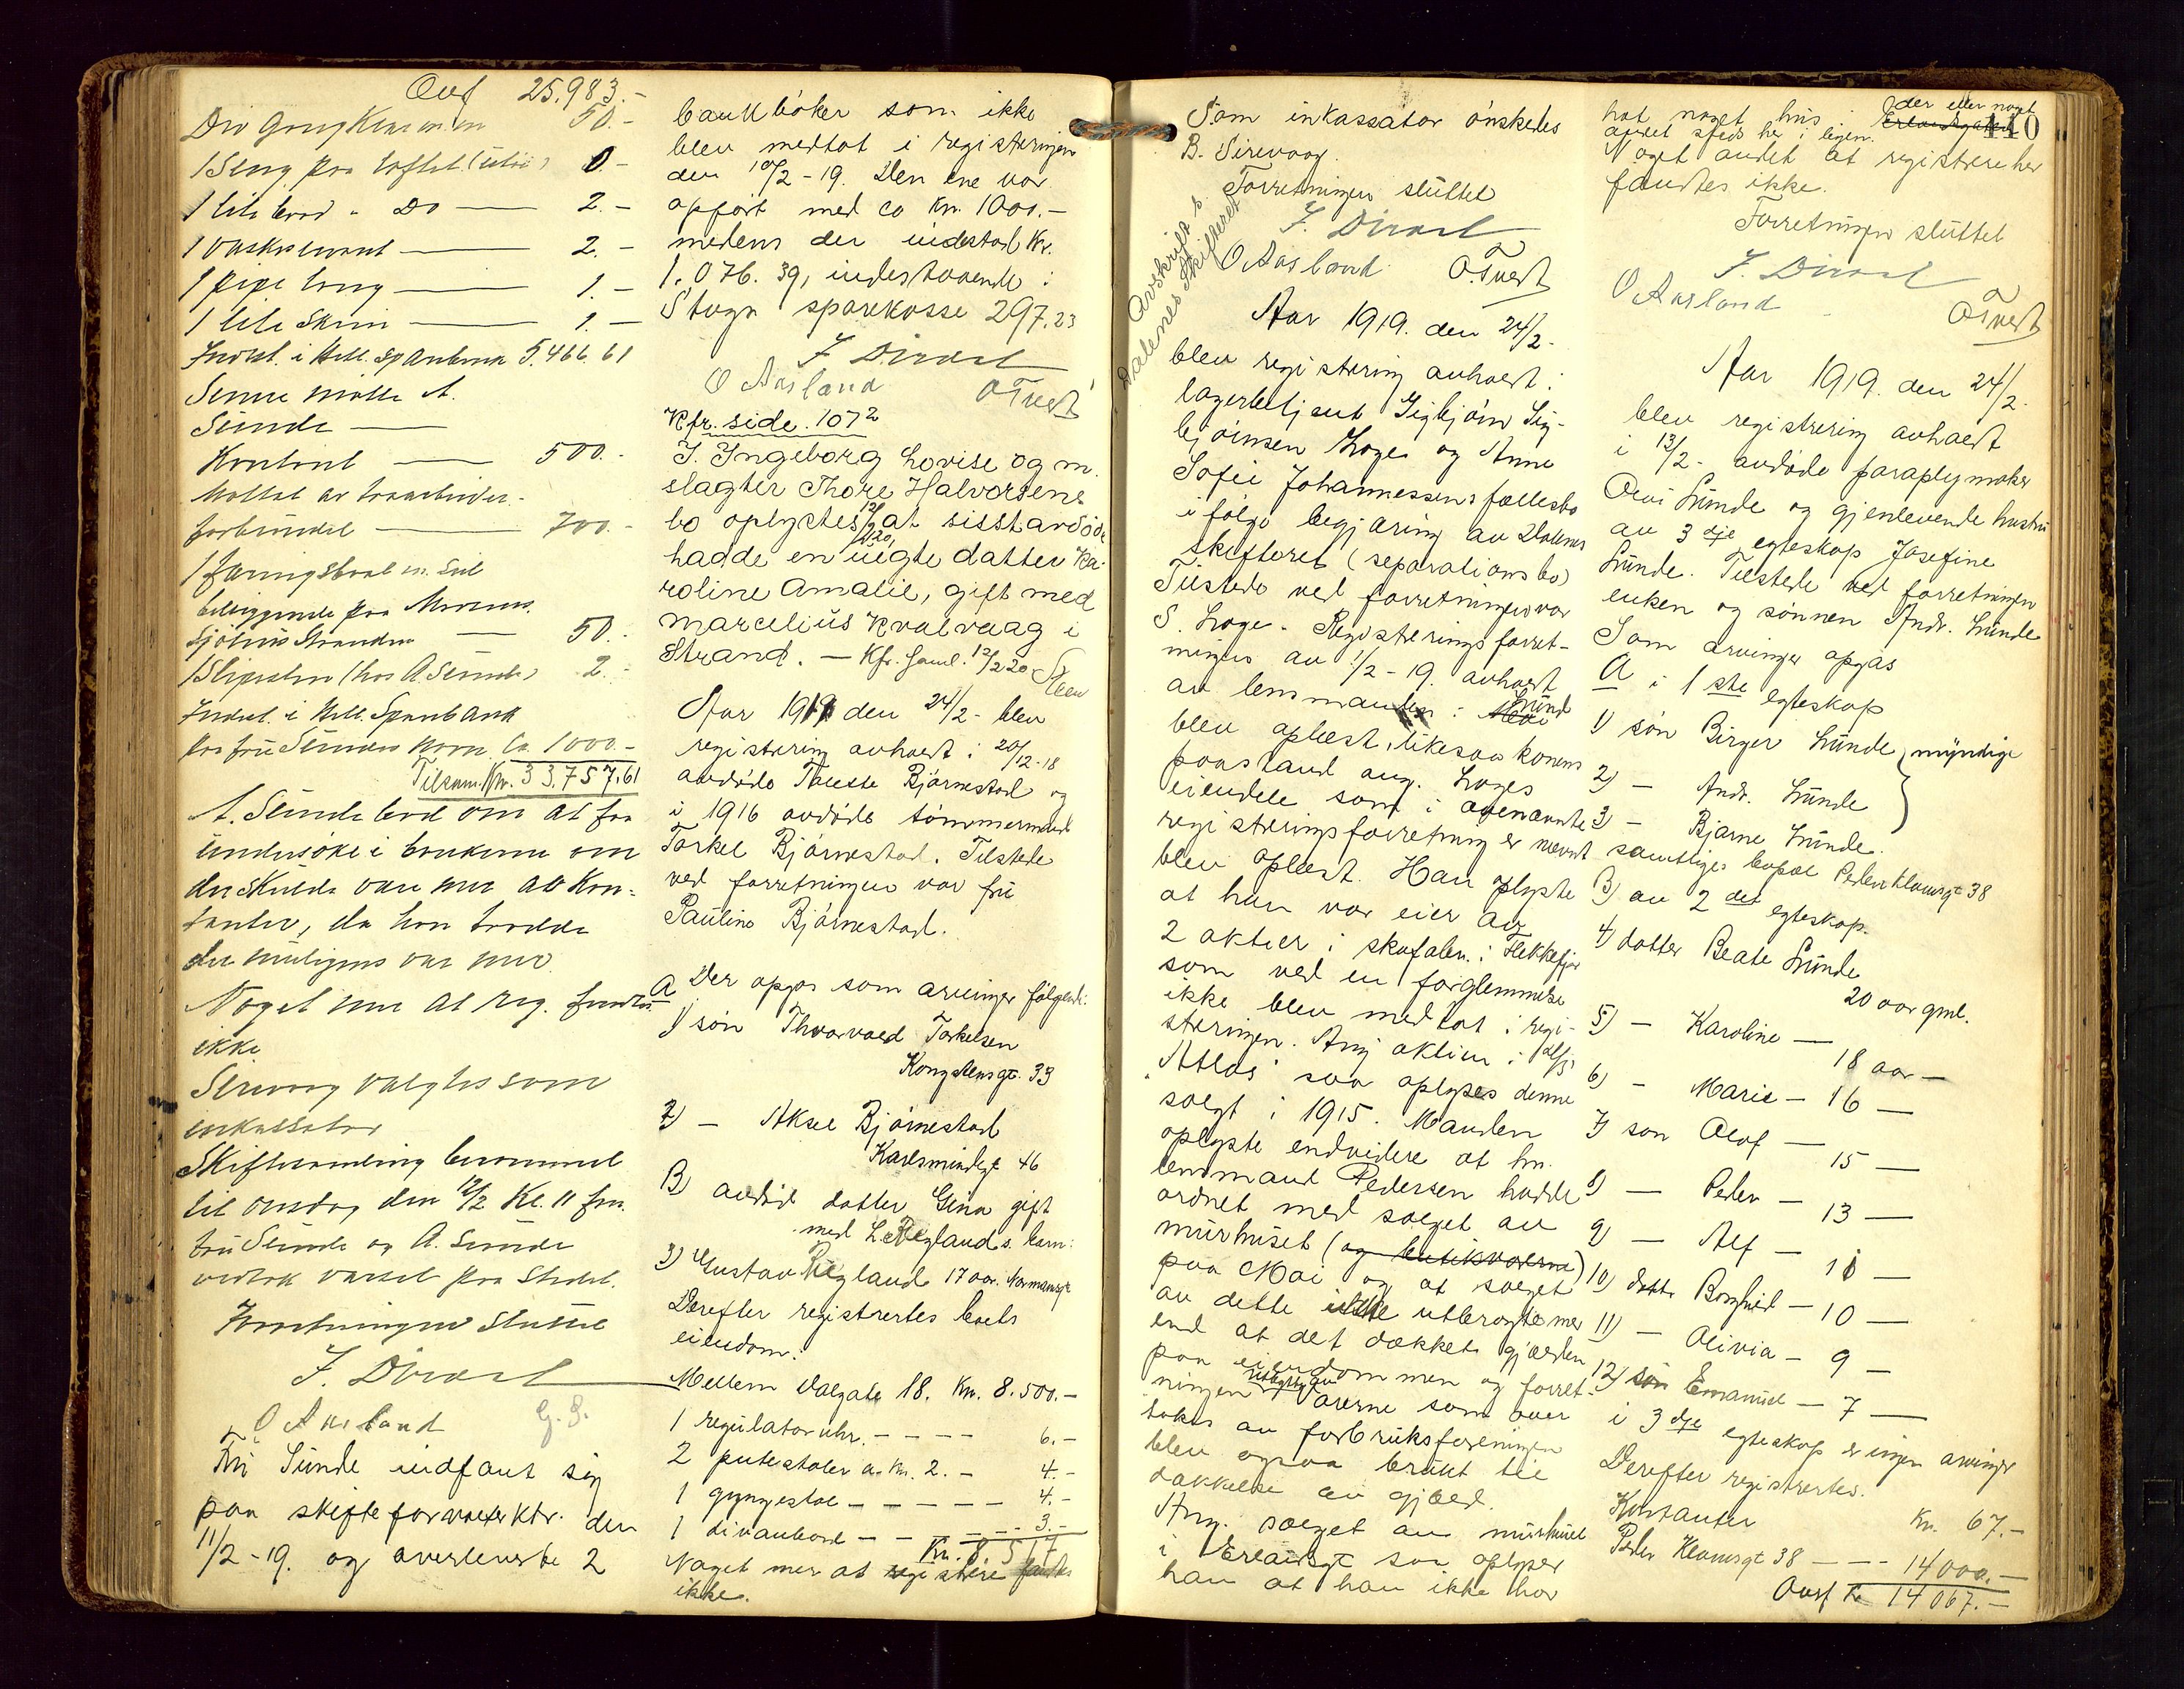 Ovf 25.983.-
Div Gangklær 50.-
1 Seng paa loftet 0.-
1 lite bord " Do 2.-
1 vaskeservant 2.-
1 pipe 1.-
1 lite Skrin 1.-
Indst. i Hetl. Sparebank 5.466.61
Senne mølle A.
Sunde
Kontant 500.-
forbundet 700.-
1 Færingsbaat m. Seil
beliggende paa
50.-
1 Slipesten (hos A. Sunde) 2.-
Indest. i Hetl. Sparebank
paa fru Sundes navn Ca 1000.-
Tilsam. Kr. 33.757.61
A. Sunde bad om at faa
undersøke i bankerne om
der skulde være mer av kon-
tanter, da hun trodde
der muligens var mer
Noget mer at reg. fandtes
ikke.
Sirevaag valgtes som
inkassator
Skiftesamling berammet
til onsdag den 12/2 Kl. 11 fm.
Fru Sunde og A. Sunde
vedtok varsel paa Stedet.
Forretningen Sluttet
J. Dirdal
O Aarland G. S.
Fru Sunde indfant sig
paa skifteforvalterktr. den
11/2-19. og overleverte 2
bankbøker som ikke
blev medtat i registeringen
den 10/2-19. Den ene var
opført med ca Kr. 1000.-
medens der indestod Kr.
1.076.39, indestaaende i
Stugn sparekasse 297.23
J Dirdal
O Aarland O Tvedt
Kfr. side. 107 2
I. Ingeborg Lovise og m.
slagter Thore Halvorsens
bo oplystes 12/2 20, at sisstavdøde
hadde en uegte datter Ka-
roline Amalie, gift med
Marcelius Kvalvaag i
Strand. — Kfr. saml. 12/2 20 Steen
Aar 1919 den 24/2- blev
registering avholdt i 20/12-18
avdøde Tarette Bjørnestad og
i 1916 avdøde tømmermand
Torkel Bjørnestad. Tilstede
ved forretningen var fru
Pauline Bjørnestad.
A Der opgaes som arvinger følgende:
1) søn Thorvald Torkelsen
Kongstensgt. 33
2) — Aksel Bjørnestad
Karlsmindegt 46
B) avdød datter Gina gift
med L. Regland s. barn:
3) Gustav Regland 17 aar. Normansgt
Derefter registrertes boets
eiendom:
Mellem Dalgate 18. Kr. 8.500.-
1 regulatoruhr. - - - - 6.-
2 putestoler a. Kr. 2.- 4.-
1 gyngestol - - - - - 4.-
1 divanbord - - - - - 3.-
Kr. 8.517
Noget mer at registrere fandtes
ikke.
Som inkassator ønskedes
B. Sirevaag.
Forretningen sluttet
J. Dirdal
O Aarland O. Tvedt
Avskrift t.
Dalenes Skifteret
Aar 1919. den 24/2-
blev registering avholdt i
lagerbetjent Sigbjørn Sig-
bjørnsen Hoges og Anne
Sofie Johannessens fællesbo
i følge begjæring av Dalenes
skifteret (separationsbo)
Tilstede ved forretningen var
S. Hoge. Registeringsforret-
ningen av 1/2-19. avholdt
av lensmanden i Sund
blev oplæst, likesaa konens
paastand ang. Hoges
eiendele som i ovenævnte
registeringsforretning er nævnt
blev oplæst. Han oplyste
at han var eier av
2 aktier i skofabr. i Flekkefjor
som ved en forglemmelse
ikke blev medtat i regi-
streringen. Ang aktien i D/S
"Atlas" saa oplyses denne
solgt i 1915. Manden
oplyste endvidere at hr.
lensmand Pedersen hadde
ordnet med salget av
murhuset (og butikvarerne)
paa Moi og at salget
av dette ikke utbragte mer
end at det dækket gjælden
paa eiendommen og forret-
ningen utbytte av Varerne som over
tokes av forbruksforeningen
blev ogsaa brukt til
dækkelse av gjæld.
Ang. salget av murhuset
i Erlandsgt saa oplyser
han at han ikke har
110
hat noget hus i Erlandsgaten der eller noget
andet steds her i byen.
Noget andet at registrere her
fandtes ikke.
Forretningen sluttet
J. Dirdal
O Aarland O Tvedt
Aar 1919. den 24/2.
blev registrering avholdt
i 13/2- avdøde paraplymaker
Olai Lunde og gjenlevende hustru
av 3dje egteskap Josefine
Lunde. Tilstede ved forretningen
enken og sønnen Andr. Lunde
Som arvinger opgas
A i 1ste egteskap
1) søn Birger Lunde } myndige
2) — Andr. Lunde
3) — Bjarne Lunde.
samtliges bopæl Peder Klowsgt 38
B) av 2det egteskap.
4) datter Beate Lunde
20 aar gml.
5) — Karoline —
18 aar —
6) — Marie — 16 —
7 søn Olaf —
15 —
8) — Peder —
13 —
9) — Alf —
11 —
10) datter Borghild — 10 —
11) — Olivia — 9 —
12) søn Emanuel — 7 —
i 3dje egteskap er ingen arvinger
Derefter registrertes.
Kontanter Kr. 67.-
Peder Klowsgt 38 - - - 14000.-
Ovrf Kr 14067.-